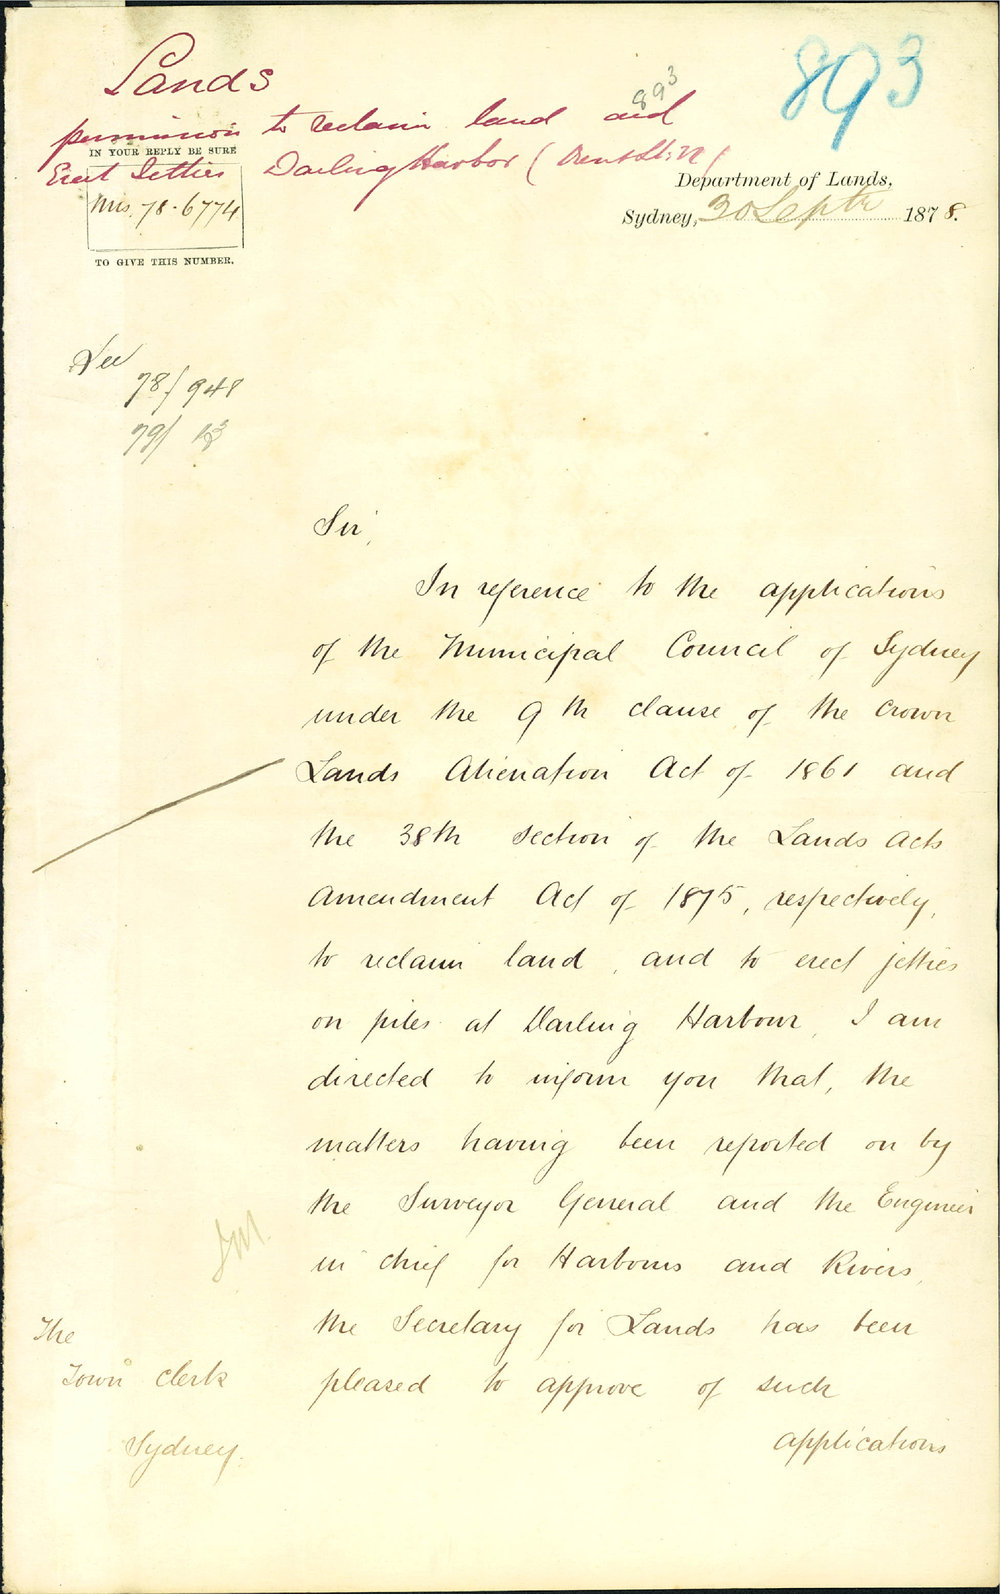 893
Lands
893
permission to reclaim land and
IN YOUR REPLY BE SURE
Erect Jetties Darling Harbor (
Department of Lands,
Mis. 78-6774
Sydney, 30 Septr 1878.
TO GIVE THIS NUMBER.
See
78/948
79/13
Sir,
In reference to the applications
of the Municipal Council of Sydney
under the 9th clause of the Crown
Lands Alienation Act of 1861 and
the 38th section of the Lands Acts
Amendment Act of 1875, respectively,
to reclaim land, and to erect jetties
on piles at Darling Harbour, I am
directed to inform you that, the
matters having been reported on by
the Surveyor General and the Engineer
in chief for Harbours and Rivers,
the Secretary for Lands has been
pleased to approve of such
applications
The
Town Clerk
Sydney.